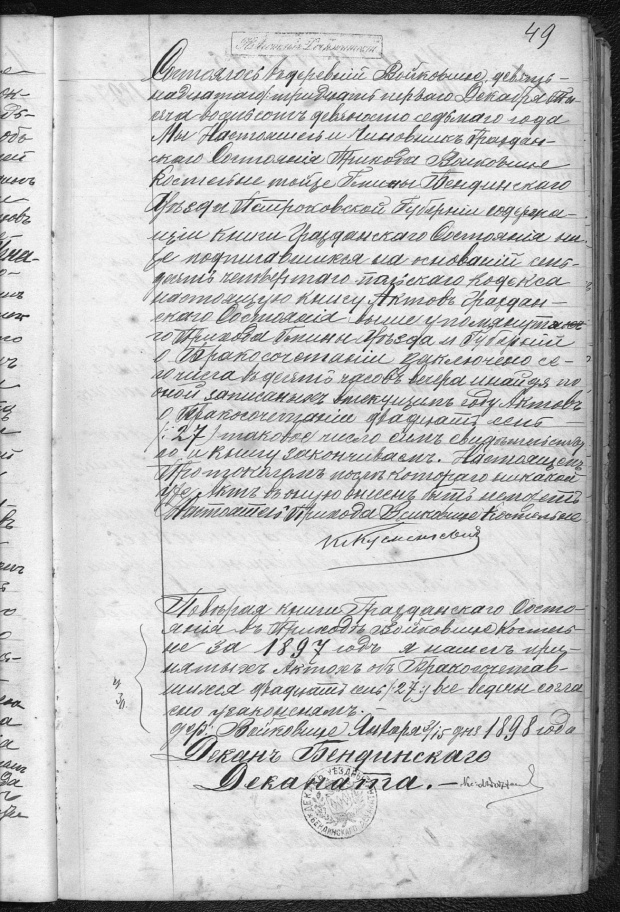 49
Состоялось въ деревнѣ Войковице, девят-
надцатаго /тридцать перваго Декабря Ты-
сяча восемьсотъ девяносто седьмаго года
Мы Настоятель и Чиновникъ Граждан-
скаго Состоянія Прихода Войковице
Костельне тойже Гмины Бендинскаго
Уѣзда Петроковской Губерніи содержа-
щій книги Гражданскаго Состоянія ни-
же подписавшійся на основаніи семь-
десятъ четвертаго Польскаго Кодекса
настоящую книгу Актовъ Граждан-
скаго Состоянія выше упомянута-
го Прихода Гмины Уѣзда и Губерніи
о Бракосочетаніи заключено се-
го числа въ десять часовъ вечера и найдя по
оной записанныхъ въ текущемъ году Актовъ
о Бракосочетаніи двадцать семь
/:27/ таковое число симъ свидѣтельству-
ю и книгу заканчиваемъ. Настоящимъ
Протоколомъ послѣ котораго никакой
уже Актъ въ оную внесенъ быть не можетъ
Настоятель Прихода Войковице Костельне
Повѣряя книги Гражданскаго Состо-
янія въ Приходѣ Войковице Костель-
не за 1897 годъ я нашелъ при-
нятыхъ Актовъ объ Бракосочетав-
шихся двадцать семь /:27:/ все
согла-
сно узаконеніямъ. -
дер. Войковице Января 3/15 дня 1898 года
Деканъ Бендинскаго
Деканата. -